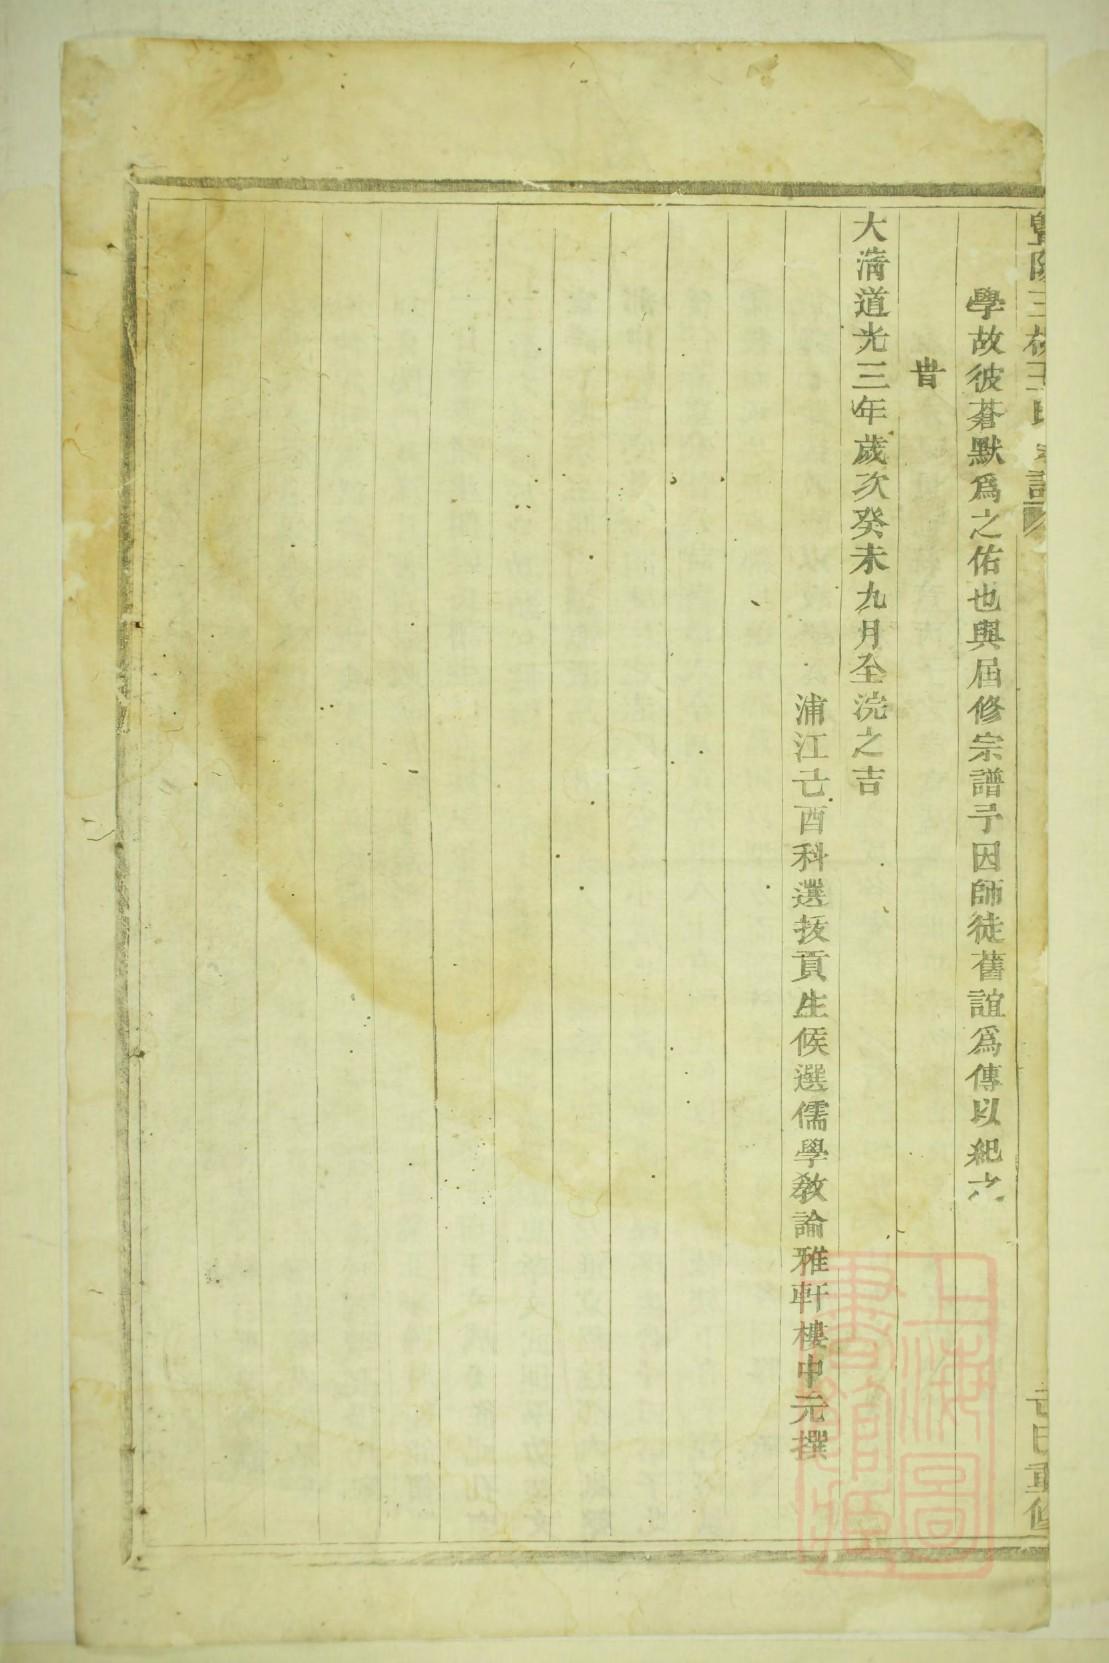 學故彼蒼默爲之佑也與屆修宗譜予因師徒舊誼爲傳以紀之
旹
大淸道光三年歲次癸未九月全浣之吉
浦江己酉科選拔貢生候選儒學教諭雅軒樓中元撰
上海圖書館藏